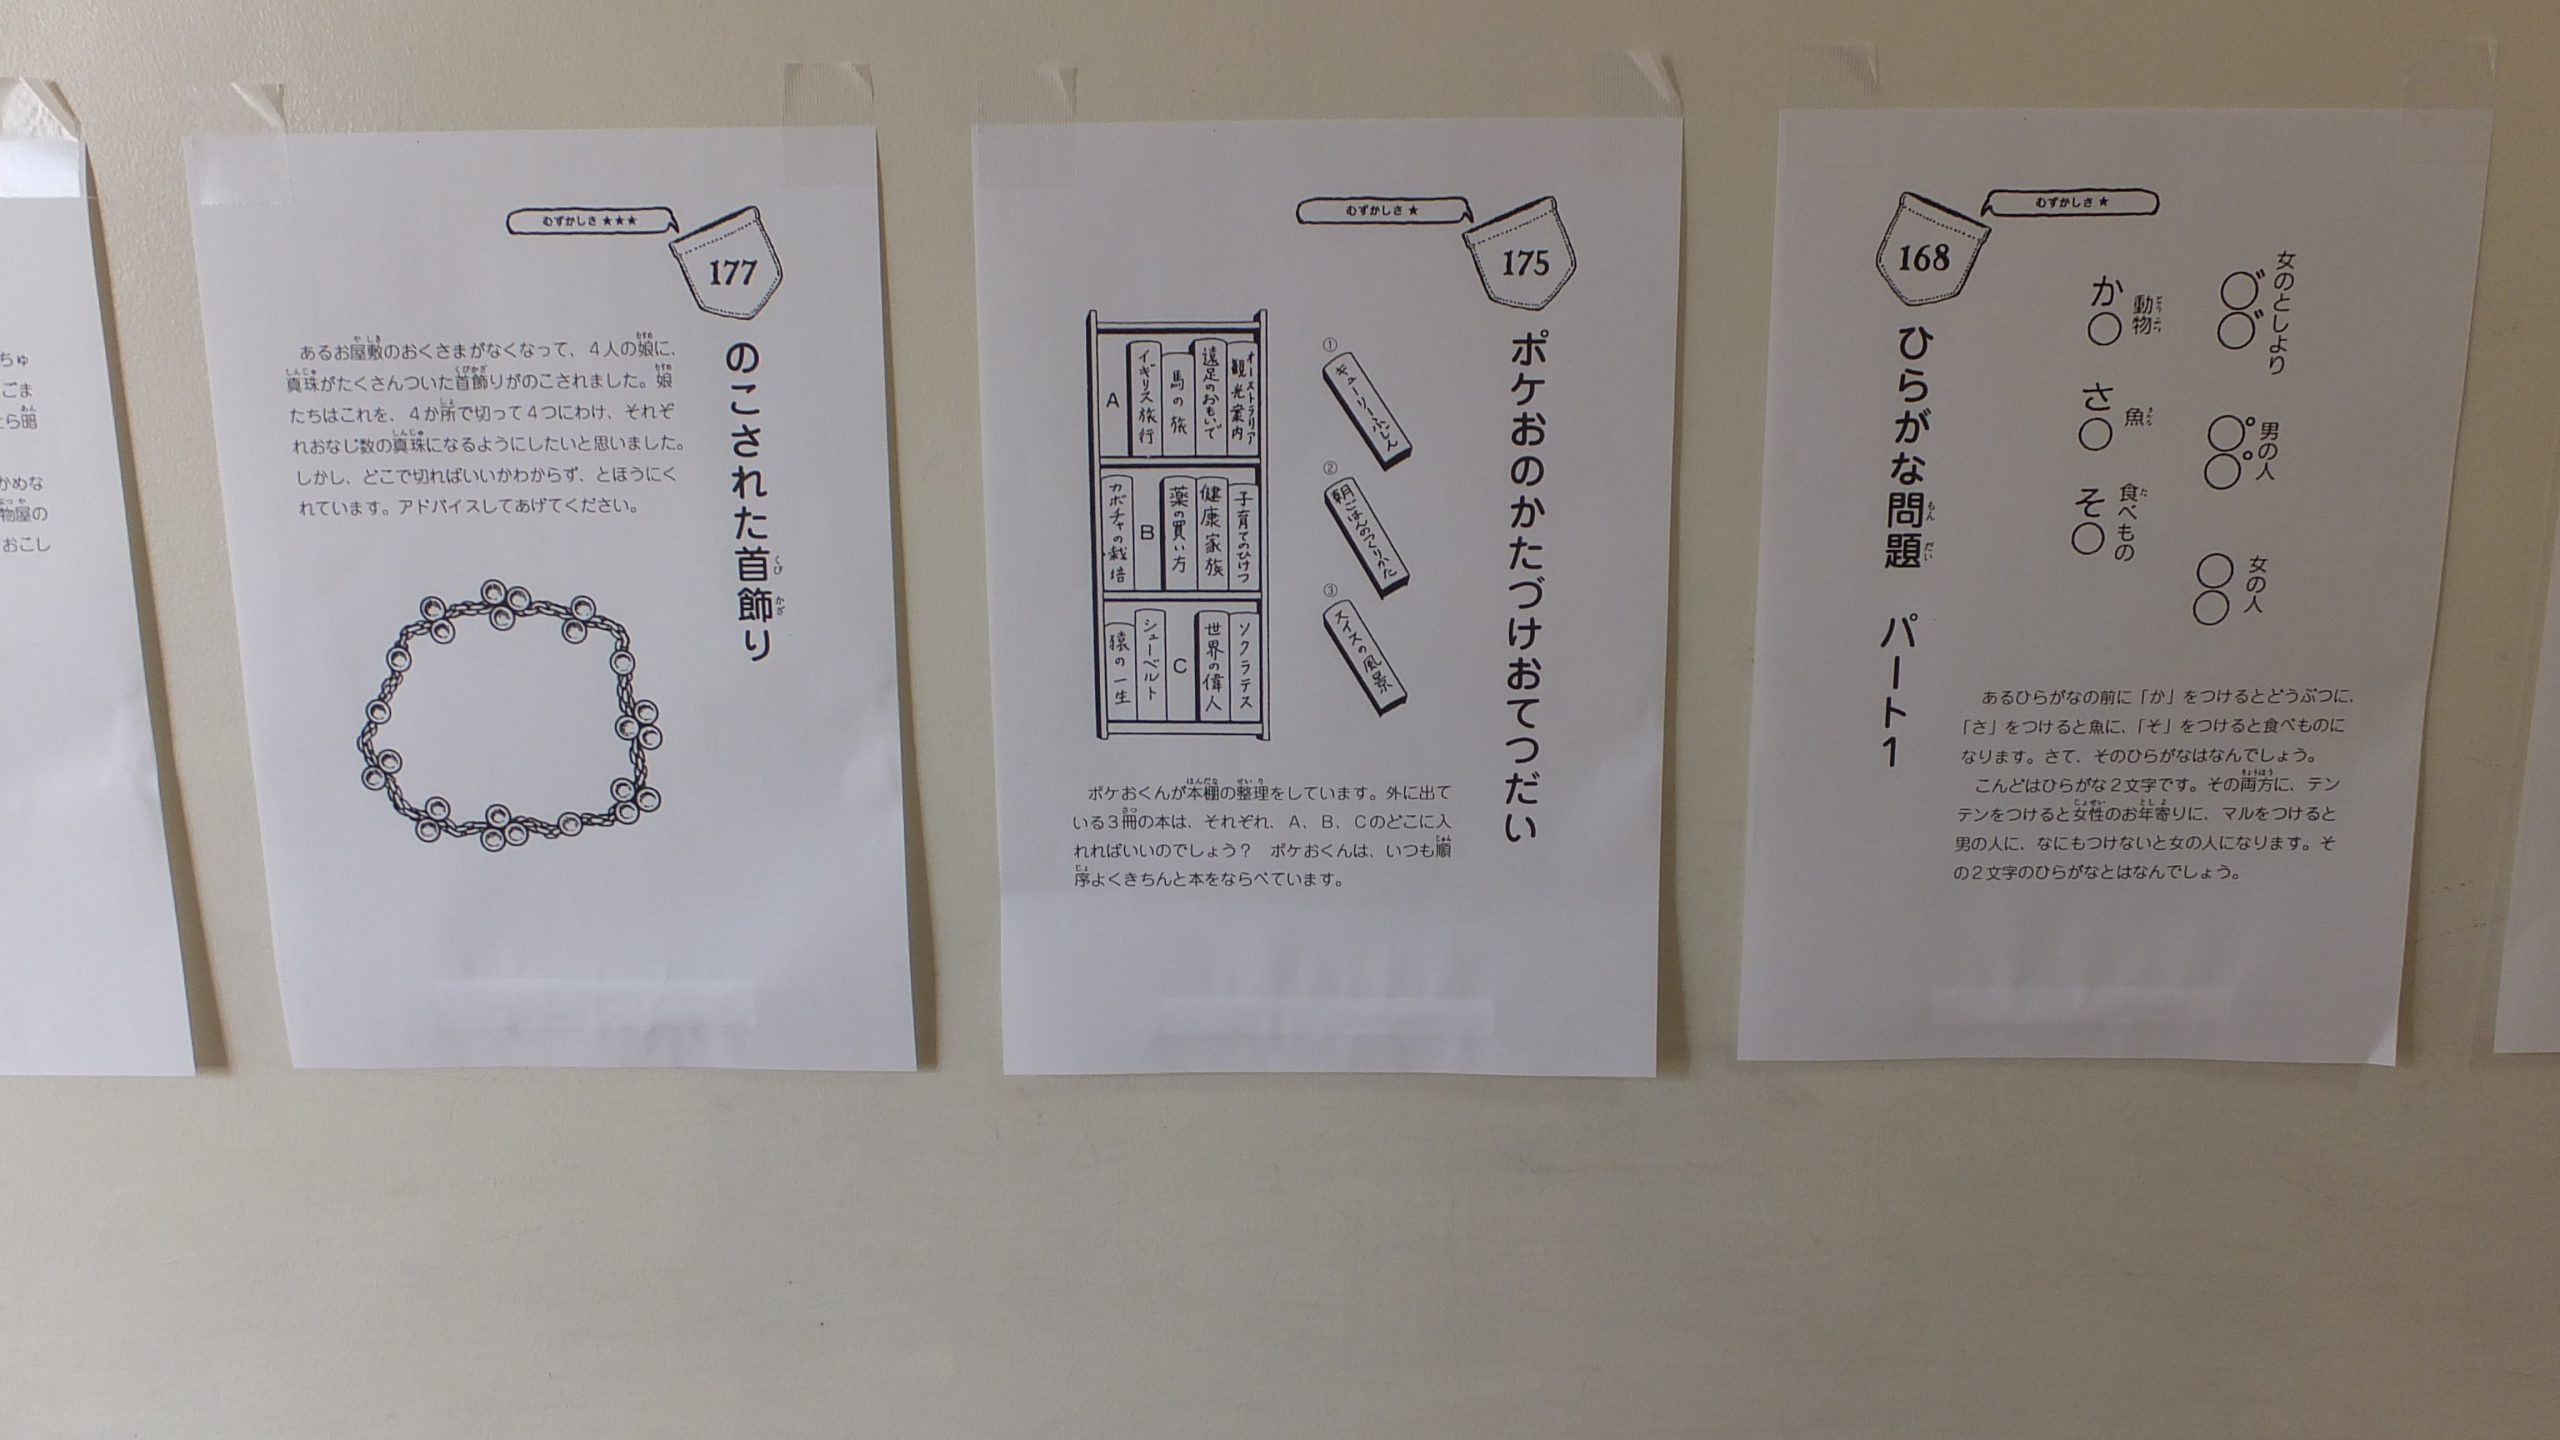 ちゅ
ごま
ら暗
あん
かめな
物屋の
おこし
むずかしさ ★★★
177
のこされた首飾り
くび かざ
あるお屋敷のおくさまがなくなって、４人の娘に、
真珠がたくさんついた首飾りがのこされました。娘
たちはこれを、４か所で切って４つにわけ、それぞ
れおなじ数の真珠になるようにしたいと思いました。
しかし、どこで切ればいいかわからず、とほうにく
れています。アドバイスしてあげてください。
むずかしさ ★
175
ポケおのかたづけおてつだい
①
キューリーふじん
②
朝ごはんのつくりかた
③
スイスの風景
オーストラリア観光案内
遠足のおもいで
馬の旅
イギリス旅行
A
子育てのひけつ
健康家族
薬の買い方
B
カボチャの栽培
ソクラテス
世界の偉人
C
シューベルト
猿の一生
ポケおくんが本棚の整理をしています。外に出て
いる３冊の本は、それぞれ、Ａ、Ｂ、Ｃのどこに入
れればいいのでしょう？　ポケおくんは、いつも順
序よくきちんと本をならべています。
むずかしさ ★
168
ひらがな問題　パート1
もん だい
女のとしより
○゛○゛
男の人
○゜○゜
女の人
○○
動物
どうぶつ
か○
魚
さかな
さ○
食べもの
た
そ○
あるひらがなの前に「か」をつけるとどうぶつに、
「さ」をつけると魚に、「そ」をつけると食べものに
なります。さて、そのひらがなはなんでしょう。
こんどはひらがな２文字です。その両方に、テン
テンをつけると女性のお年寄りに、マルをつけると
男の人に、なにもつけないと女の人になります。そ
の２文字のひらがなとはなんでしょう。